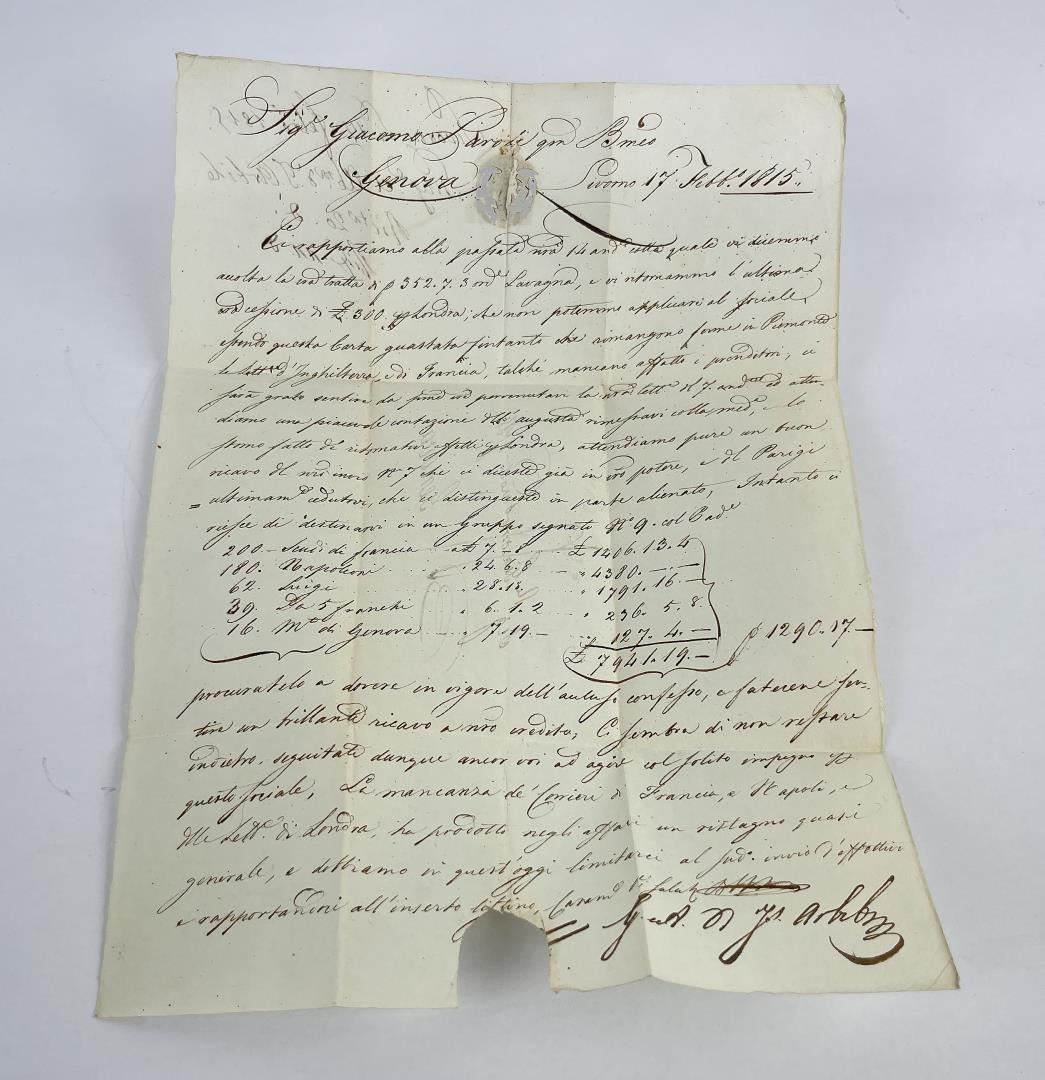 Sigr. Giacomo Parodi qm Bmeo
Genova Livorno 17 Febbo. 1815.
Ci rapportiamo alla passata nra 14 andte colla quale vi dicemmo
accolta la vra tratta di p 352.7.3 ord. Lavagna, e vi ritornammo l'ultima
vra cessione di £ 300 Londra, che non potemmo applicare al sociale,
essendo questa Carta guastata sintanto che rimangono ferme in Piemonte
le lettere d'Inghilterra, e di Francia, talché mancano affatto i prenditori; ci
sarà grato sentire da pervenutavi la nra lettera del 7 andte ed atten-
diamo una piacevole contazione augusta rimessavi colla meda, e lo
stesso fatto di effetti Londra, attendiamo pure un buon
ricavo del No 7 che ci diceste già in vro potere, e di Parigi
ultimamte cedutovi, che ci distingueste in parte alienato, Intanto ci
riesce di destinarvi in un Gruppo segnato No 9. col Pade
200.- Scudi di francia .. a £ 7.-8 £ 1406.13.4
180. Napoleoni .... 24.6.8 " 4380.-.-
62. Luigi .... 28.18. " 1791.16.-
39. Da 5 franchi " 6.1.2 " 236.5.8.
16. Mte di Genova .... " 7.19.- 127.4.-
£ 7941.19.- p 1290.17.-
procuratelo a dovere in vigore dell'accluso confesso, e fatecene sen-
tire un brillante ricavo a nro credito; Ci sembra di non restare
indietro, seguitate dunque ancor voi ad agire col solito impegno
questo sociale, La mancanza de' Corrieri di Francia, e Napoli, e
delle Lettere di Londra, ha prodotto negli affari un ristagno quasi
generale, e dobbiamo in quest'oggi limitarci al sudo. invio d'effettivi
e rapportandoci all'inserto listino, Caramte vi Saluto
G. ed A. di